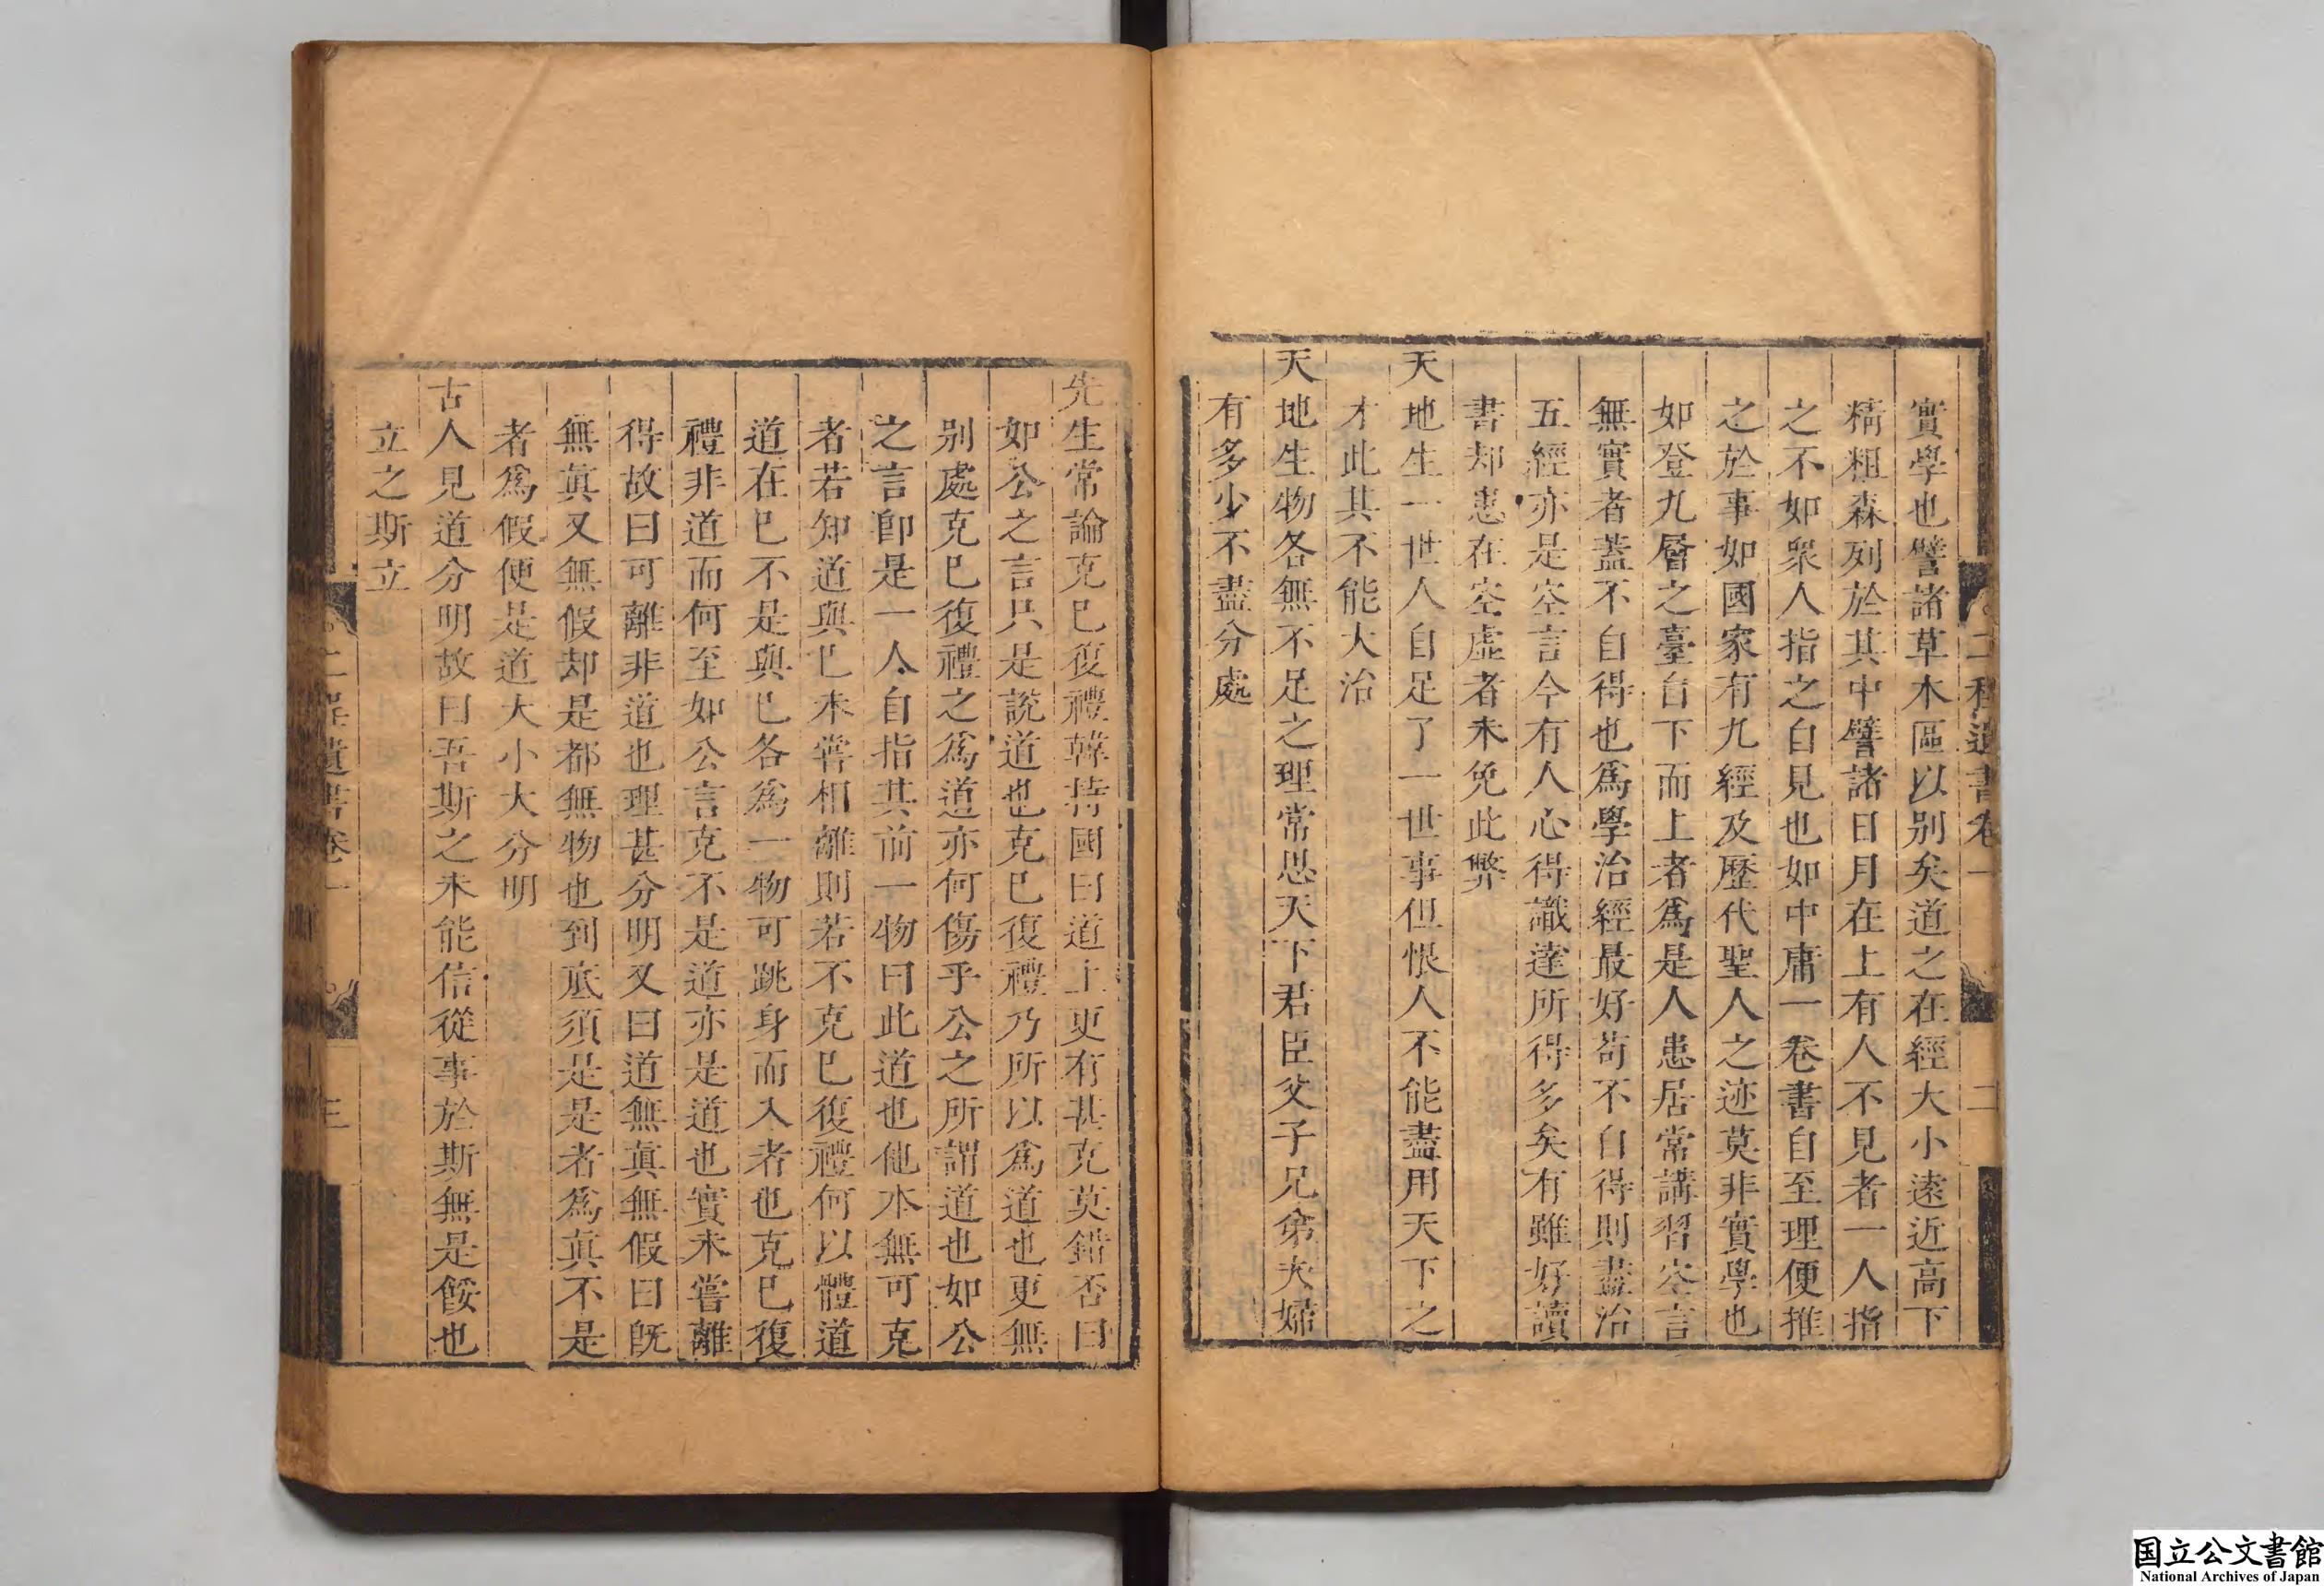 二程遺書卷一
二
實學也譬諸草木區以別矣道之在經大小遠近高下
精粗森列於其中譬諸日月在上有人不見者一人指
之不如衆人指之自見也如中庸一卷書自至理便推
之於事如國家有九經及歷代聖人之迹莫非實學也
如登九層之臺自下而上者爲是人患居常講習空言
無實者蓋不自得也爲學治經最好苟不自得則盡治
五經亦是空言今有人心得識達所得多矣有雖好讀
書却患在空虛者未免此弊
天地生一世人自足了一世事但恨人不能盡用天下之
才此其不能大治
天地生物各無不足之理常思天下君臣父子兄弟夫婦
有多少不盡分處
先生常論克己復禮韓持國曰道上更有甚克莫錯否曰
如公之言只是說道也克己復禮乃所以爲道也更無
別處克己復禮之爲道亦何傷乎公之所謂道也如公
之言卽是一人自指其前一物曰此道也他本無可克
者若知道與己未嘗相離則若不克己復禮何以體道
道在己不是與己各爲一物可跳身而入者也克己復
禮非道而何至如公言克不是道亦是道也實未嘗離
得故曰可離非道也理甚分明又曰道無眞無假曰旣
無眞又無假却是都無物也到底須是是者爲眞不是
者爲假便是道大小大分明
古人見道分明故曰吾斯之未能信從事於斯無是餒也
立之斯立
二程遺書卷一
三
国立公文書館
National Archives of Japan